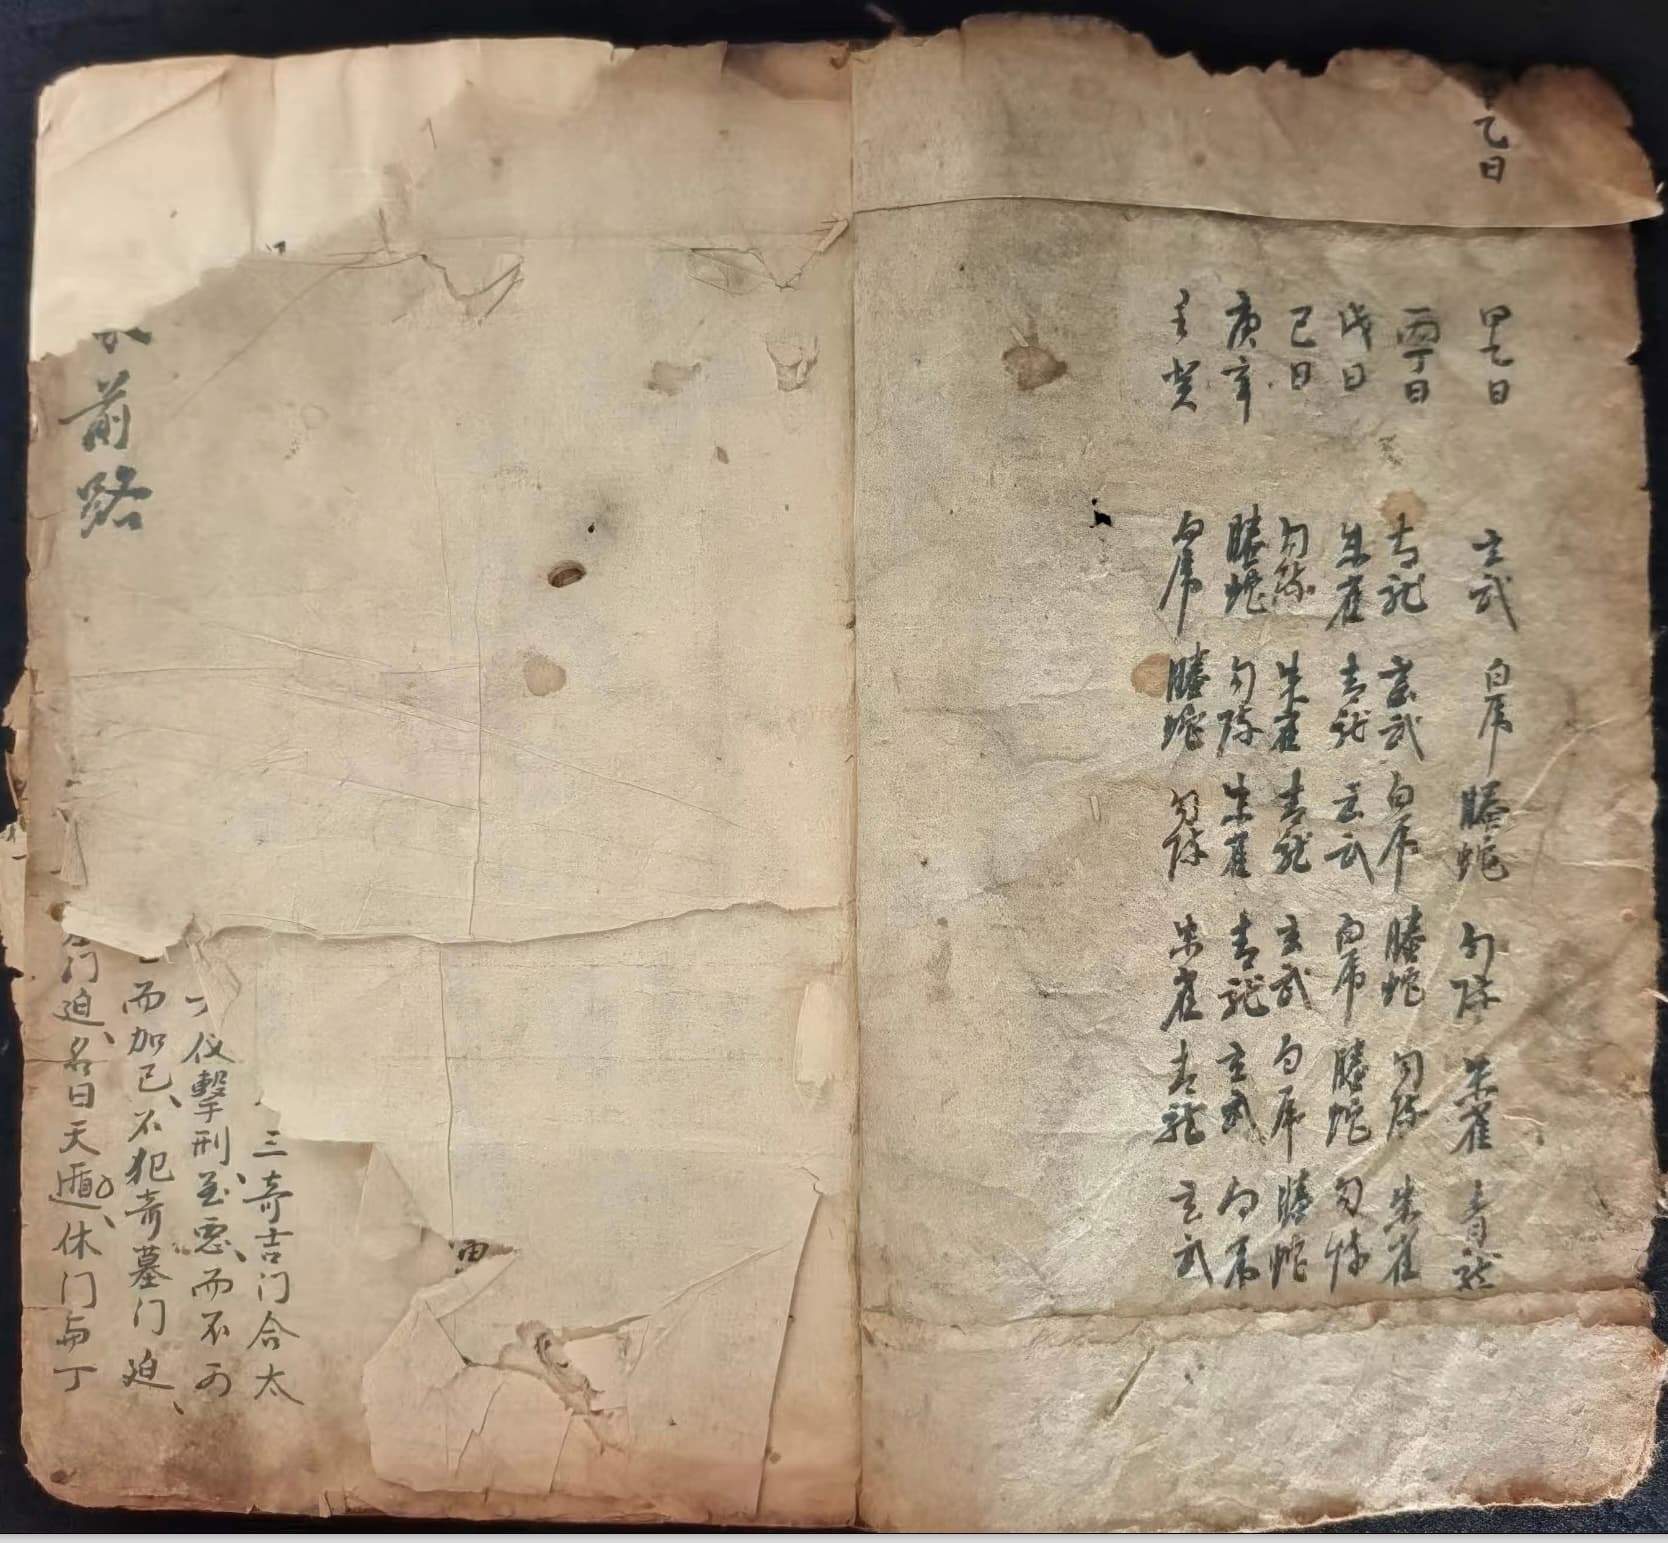 乙日
甲乙日 玄武 白虎 螣蛇 勾陈 朱雀 青龙
丙丁日 青龙 玄武 白虎 螣蛇 勾陈 朱雀
戊日 朱雀 青龙 玄武 白虎 螣蛇 勾陈
己日 勾陈 朱雀 青龙 玄武 白虎 螣蛇
庚辛 螣蛇 勾陈 朱雀 青龙 玄武 白虎
壬癸 白虎 螣蛇 勾陈 朱雀 青龙 玄武
三奇吉门合太
仪擊刑至恶、而不可
而加已、不犯奇墓门迫、
门迫、名曰天遁、休门与丁
前路